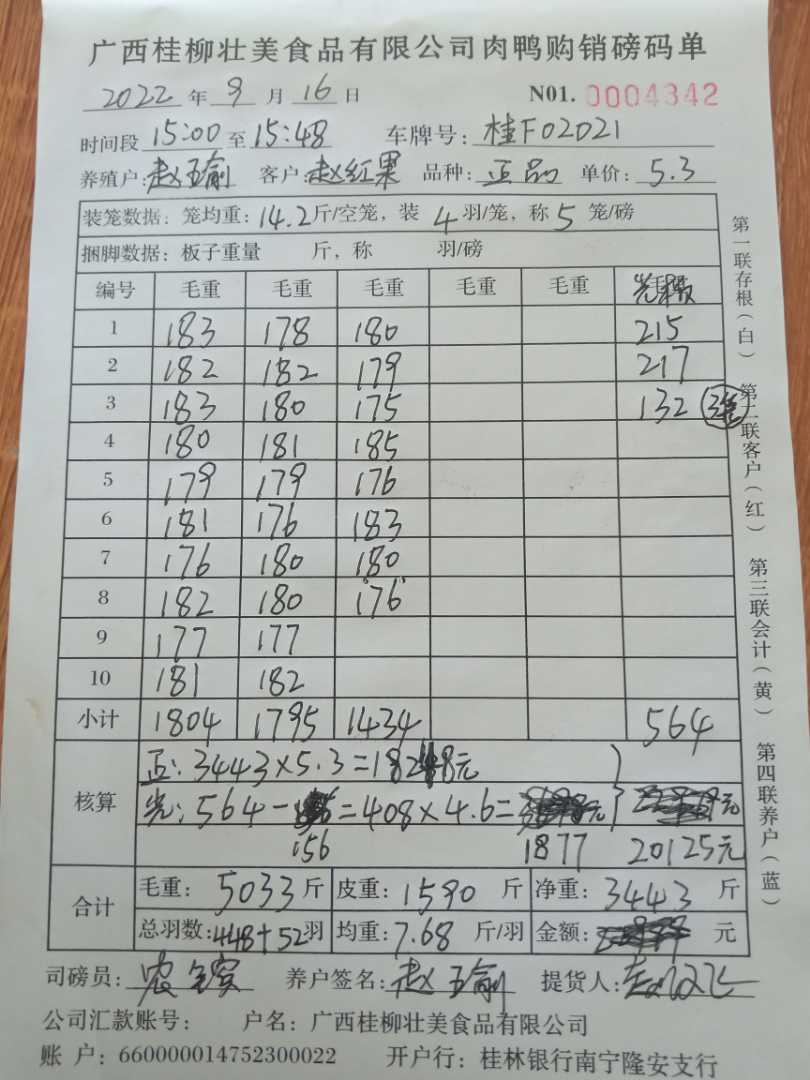 广西桂柳壮美食品有限公司肉鸭购销磅码单
2022 年 9 月 16 日 N01. 0004342
时间段 15:00 至 15:48 车牌号: 桂F02021
养殖户: 赵玉俞 客户: 赵红果 品种: 正品 单价: 5.3
装笼数据: 笼均重: 14.2 斤/空笼, 装 4 羽/笼, 称 5 笼/磅
捆脚数据: 板子重量 斤, 称 羽/磅
编号 毛重 毛重 毛重 毛重 毛重
1 183 178 180 215
2 182 182 179 217
3 183 180 175 132 3笼
4 180 181 185
5 179 179 176
6 181 176 183
7 176 180 180
8 182 180 176
9 177 177
10 181 182
小计 1804 1795 1434 564
核算 正: 3443×5.3=18248元
564- =408×4.6= 元 元
156 1877 20125元
合计 毛重: 5033 斤 皮重: 1590 斤 净重: 3443 斤
总羽数: 448+52 羽 均重: 7.68 斤/羽 金额: 元
司磅员: 养户签名: 赵玉俞 提货人:
公司汇款账号: 户名: 广西桂柳壮美食品有限公司
账 户: 660000014752300022 开户行: 桂林银行南宁隆安支行
第一联存根(白) 第二联客户(红) 第三联会计(黄) 第四联养户(蓝)